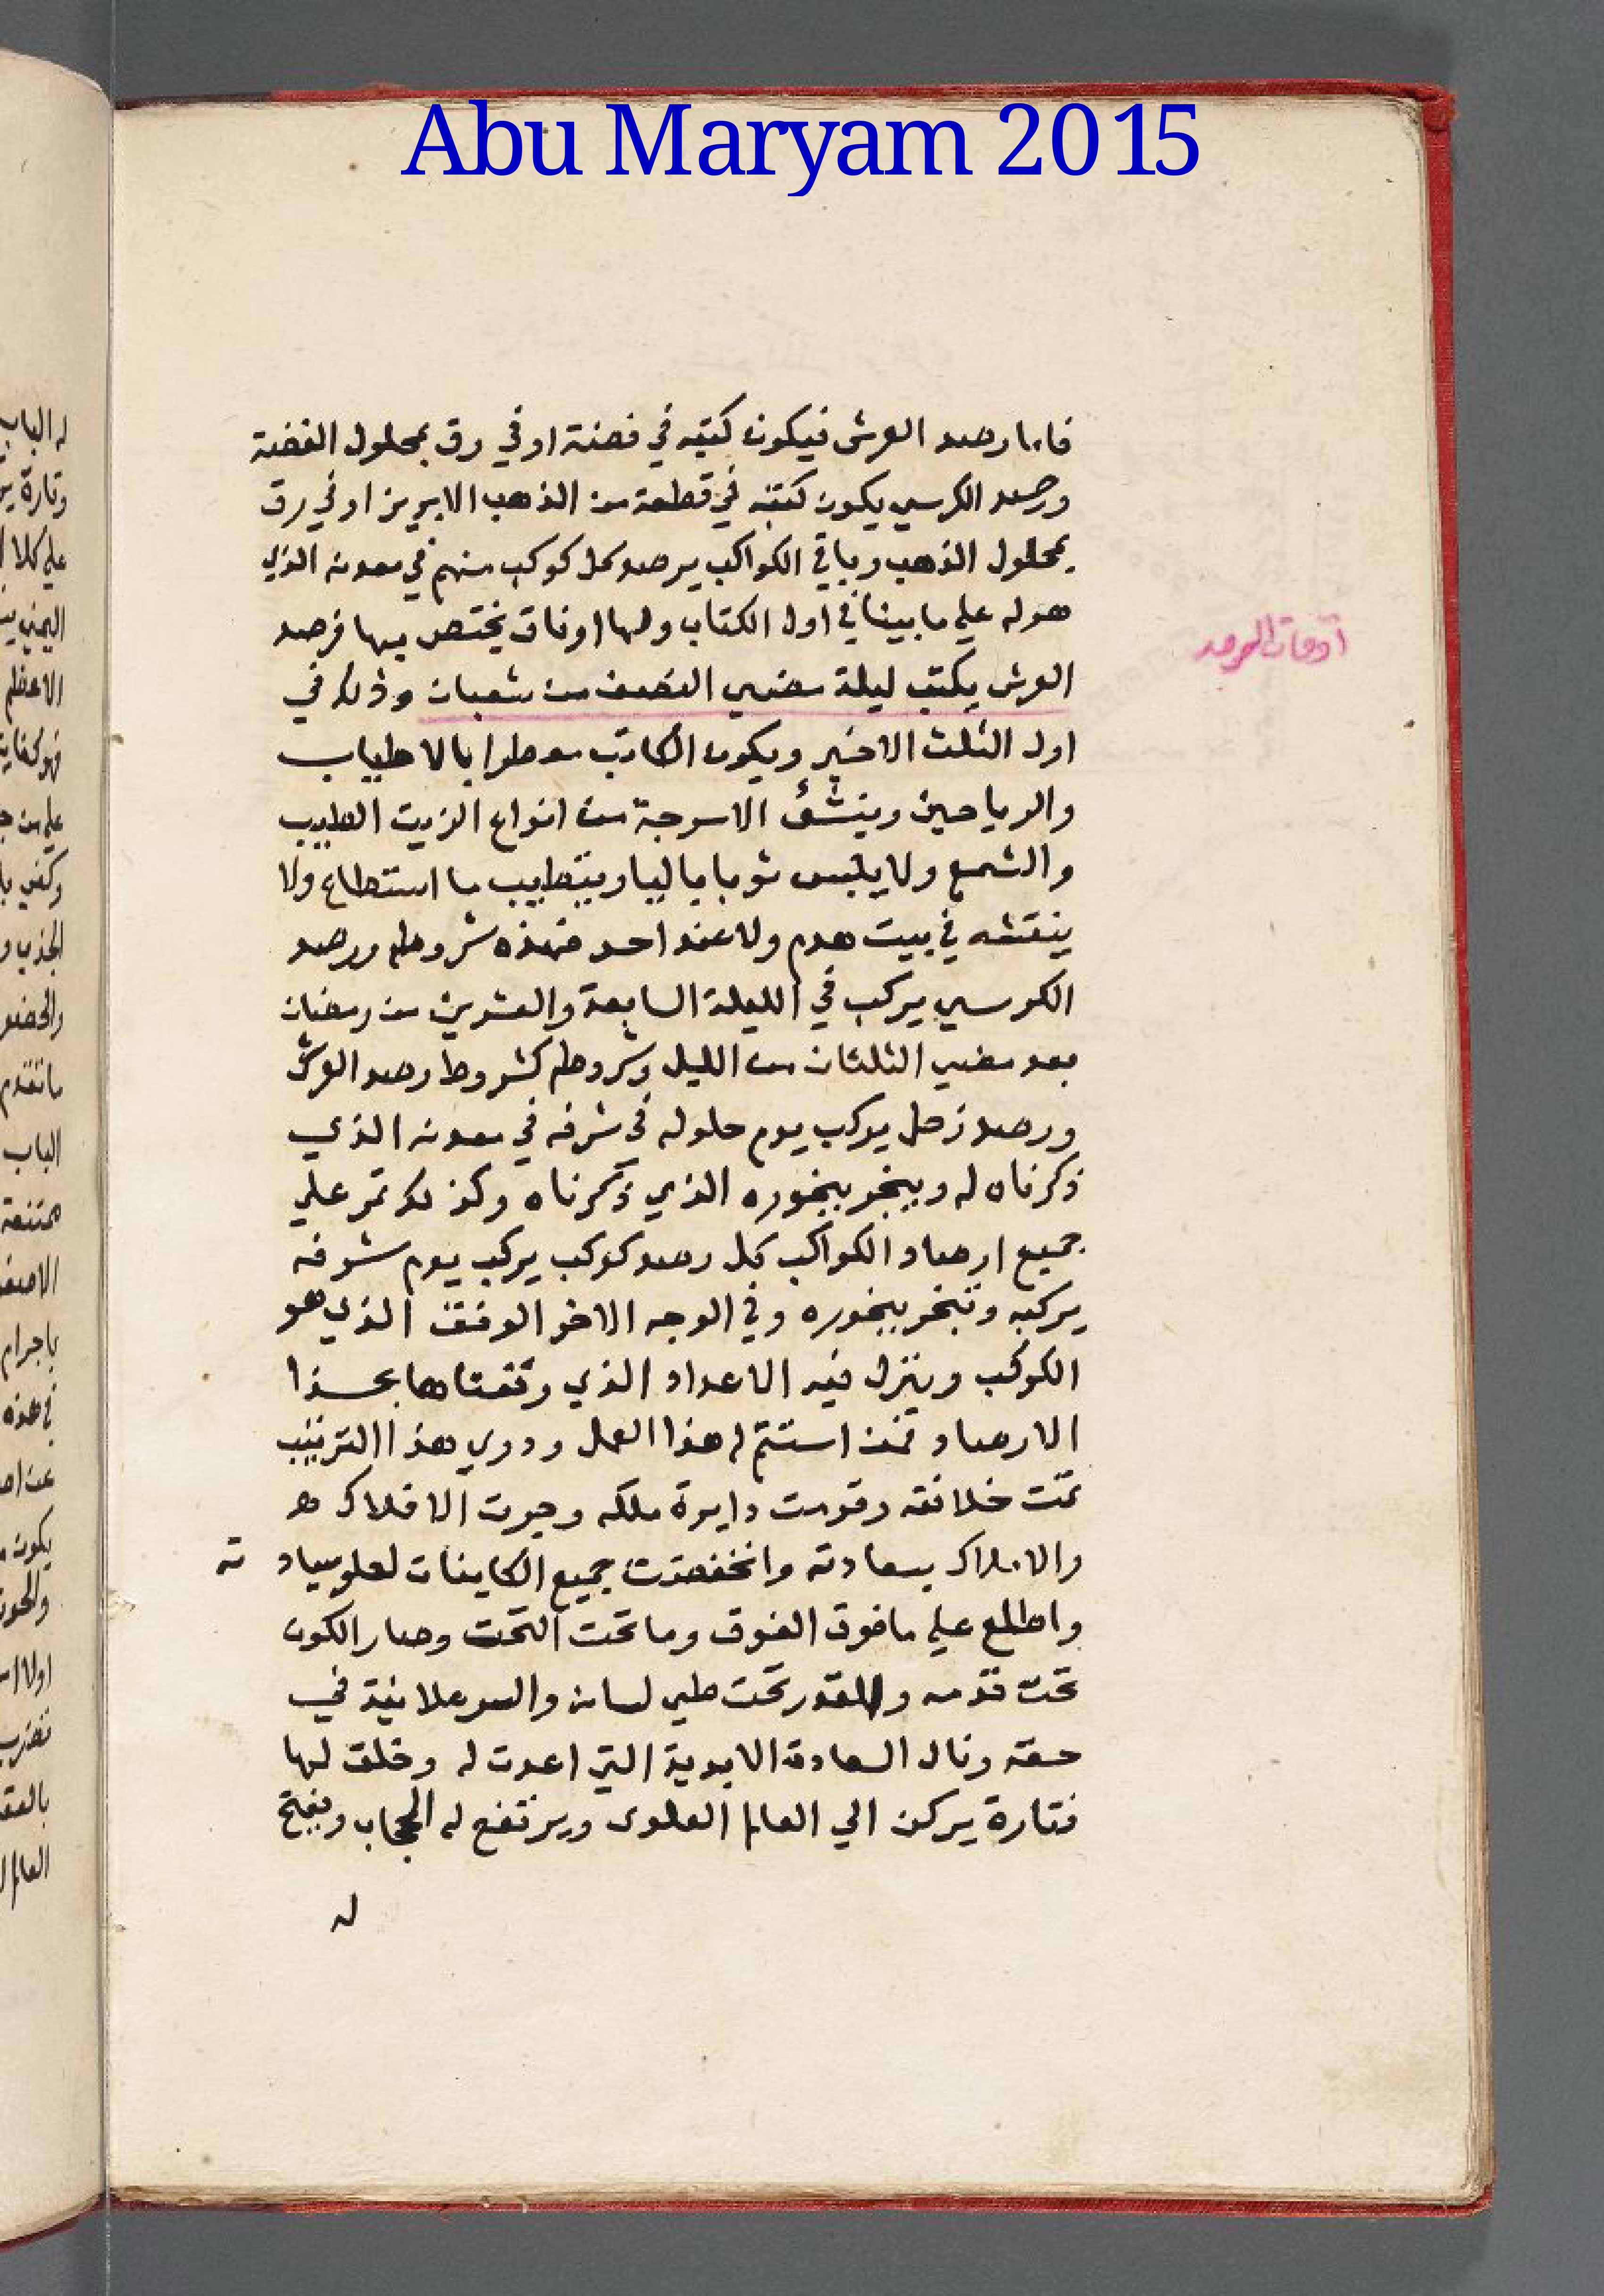 Abu Maryam 2015
فاما رصد العرش فيكون كتبه في فضة او في رق بمحلول الفضة
ورصد الكرسي يكون كتبه في قطعة من الذهب الابريز او في رق
بمحلول الذهب وباقي الكواكب يرصد كل كوكب منهم في معدنه الذي
هو له علي ما بينا في اول الكتاب ولها اوقات يختص بها فرصد
العرش يكتب ليلة مضي النصف من شعبان وذلك في
اول الثلث الاخير ويكون الكاتب معطرا بالاطياب
والرياحين وينشئ الاسرجة من انواع الزيت الطيب
والشمع ولا يلبس ثوبا باليا ويتطيب ما استطاع ولا
ينقشه في بيت هدم ولا عند احد فهذه شروطه ورصد
الكرسي يركب في الليلة السابعة والعشرين من رمضان
بعد مضي الثلثان من الليل وشروطه كشروط رصد العرش
ورصد زحل يركب يوم حلوله في شرفه في معدنه الذي
ذكرناه له ويبخر ببخوره الذي ذكرناه وكذلك تمر علي
جميع ارصاد الكواكب كل رصد كوكب يركب يوم شرفه
يركبه وتبخر ببخوره وفي الوجه الاخر الوفق الذي هو
الكوكب وينزل فيه الاعداد الذي وقفناها بهذا
الارصاد فمن استتم له هذا العمل ودري هذا الترتيب
تمت خلافته وقومت دايرة ملكه وجرت الافلاك
والاملاك بسعادته وانخفضت جميع الكاينات لعلو سيادته
واطلع علي ما فوق الفوق وما تحت التحت وصار الكون
تحت قدمه والقدر تحت طي لسانه والسر علانية في
حقه ونال السعادة الابدية التي اعدت له وخلق لها
فتارة يركن الي العالم العلوي ويرتفع له الحجاب ويفتح
له